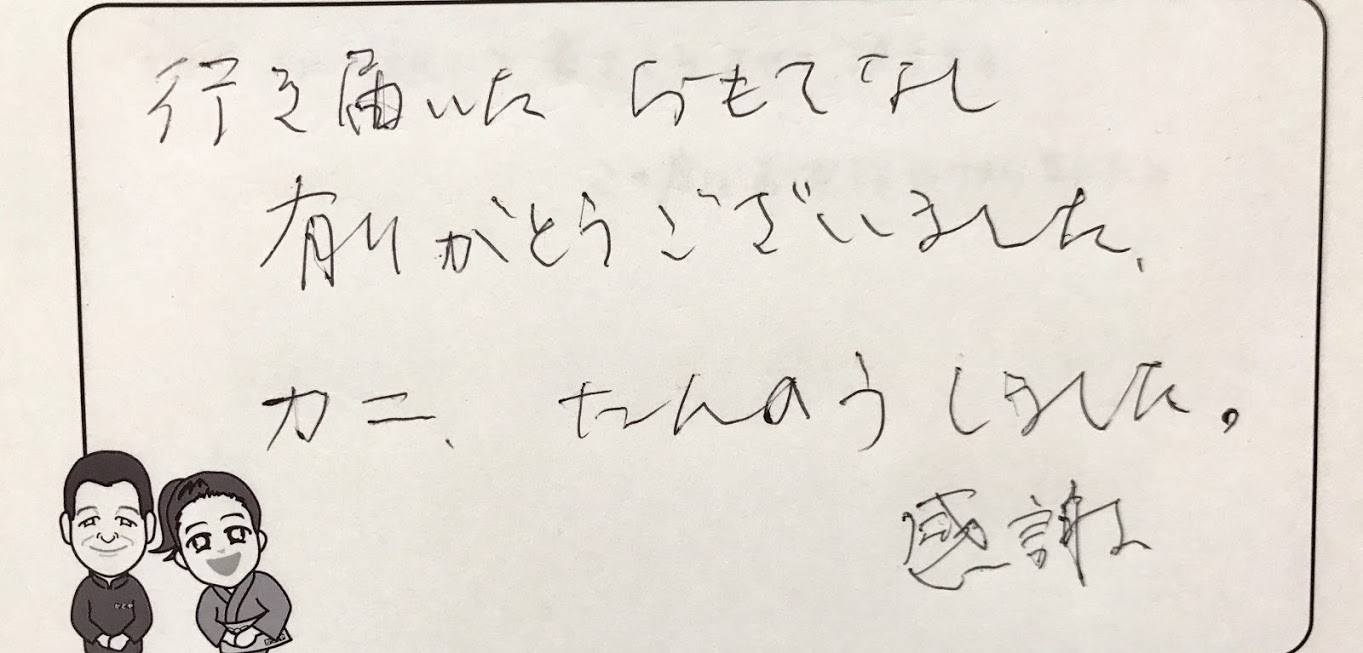 行き届いた おもてなし
有りがとうございました、
カニ、 たんのう しました。
感謝